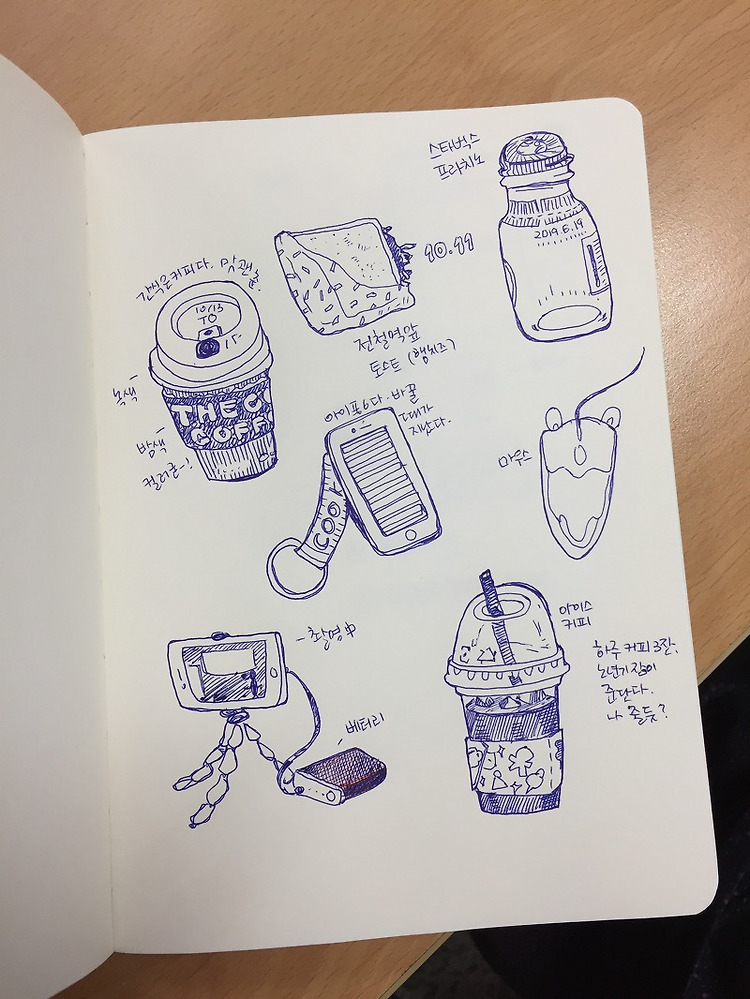 스타벅스
프라치노
2019.6.19
10.11
전철역앞
토스트 (햄치즈)
간식은커피다. 맛괜춘.
10/13
TO
THE
COFF
녹색
밤색
컬러군~!
아이폰6다. 바꿀
때가
지났다.
마우스
-촬영中
베터리
아이스
커피
하루 커피 3잔.
노년기장이
준단다.
나 줄듯?